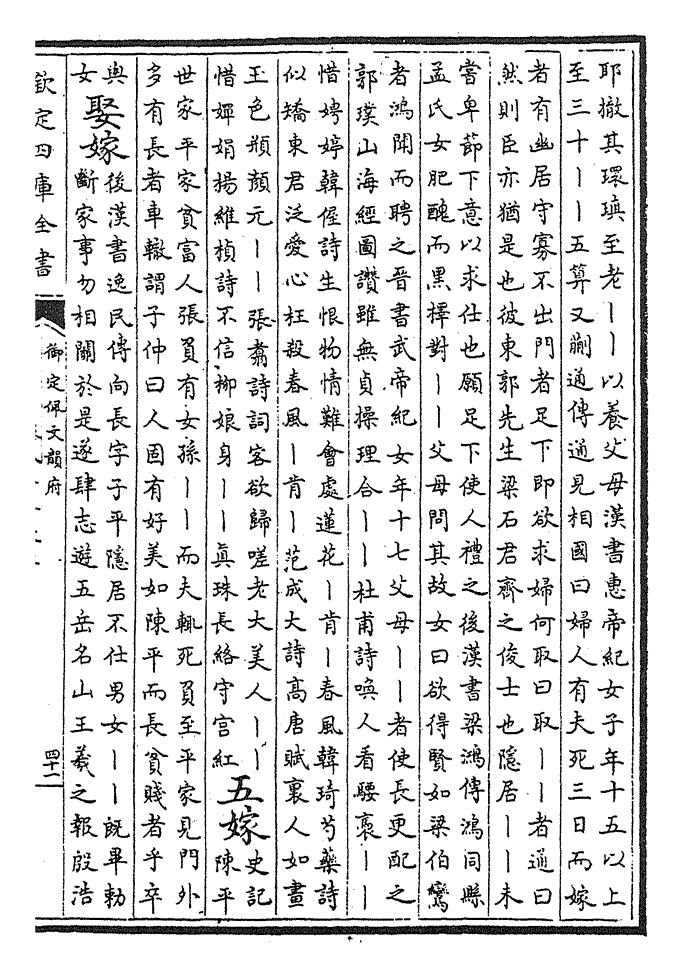 耶撤其環瑱至老丨丨以養父母漢書惠帝紀女子年十五以上
至三十丨丨五算又蒯通傳通見相國曰婦人有夫死三日而嫁
者有幽居守寡不出門者足下即欲求婦何取曰取丨丨者通曰
然則臣亦猶是也彼東郭先生梁石君齊之俊士也隱居丨丨未
嘗卑節下意以求仕也願足下使人禮之後漢書梁鴻傳鴻同縣
孟氏女肥醜而黑擇對丨丨父母問其故女曰欲得賢如梁伯鸞
者鴻聞而聘之晉書武帝紀女年十七父母丨丨者使長吏配之
郭璞山海經圖讚雖無貞操理合丨丨杜甫詩喚人看騕褭丨丨
惜娉婷韓偓詩生恨物情難會處蓮花丨肯丨春風韓琦芍藥詩
似矯東君泛愛心枉殺春風丨肯丨范成大詩高唐賦裏人如畫
玉色頩顏元丨丨張翥詩詞客欲歸嗟老大美人丨丨
惜嬋娟揚維楨詩不信柳娘身丨丨真珠長絡守宮紅
五嫁
史記陳平
世家平家貧富人張負有女孫丨丨而夫輒死負至平家見門外
多有長者車轍謂子仲曰人固有好美如陳平而長貧賤者乎卒
與女
娶嫁
後漢書逸民傳向長字子平隱居不仕男女丨丨既畢勅
斷家事勿相關於是遂肆志遊五岳名山王羲之報殷浩
欽定四庫全書
御定佩文韻府
四十二